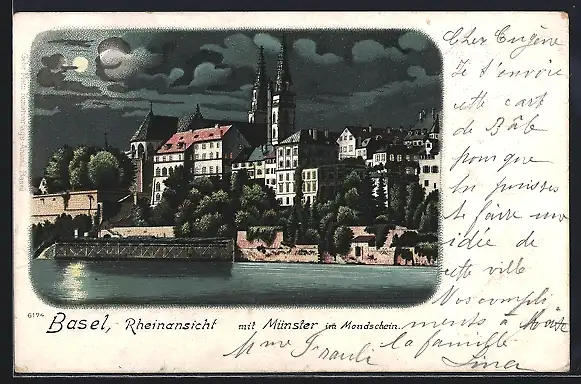 6174
Basel, Rheinansicht mit Münster im Mondschein.
Cher Eugène
Je t'envoie
cette cart
de Bâle
pour que
tu puisses
te faire une
idée de
cette ville
Vos compli
ments à
la famille
Mme
Lina